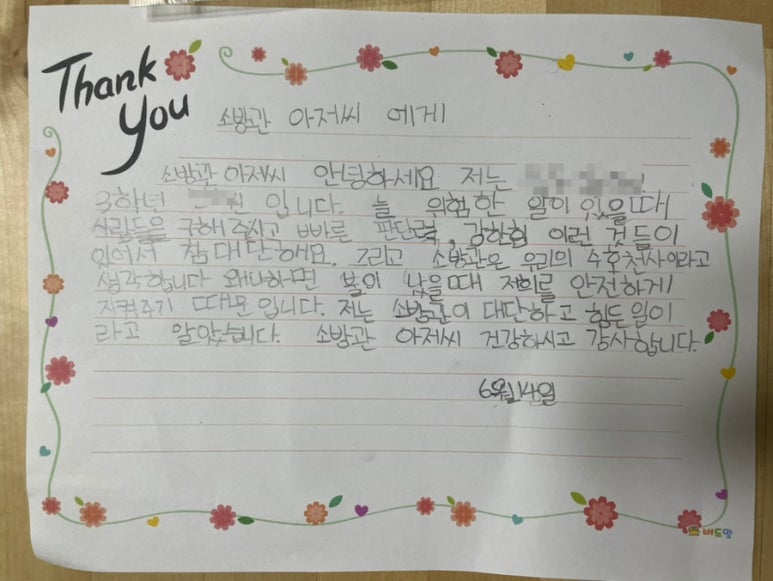 Thank
You
소방관 아저씨 에게
소방관 아저씨 안녕하세요 저는
3학년 입니다. 늘 위험한 일이 있을때
사람들을 구해 주시고 빠른 판단력, 강한힘 이런 것들이
있어서 참 대단해요. 그리고 소방관은 우리의 수호천사이라고
생각합니다 왜냐하면 불이 났을때 저희를 안전하게
지켜주기 때문입니다. 저는 소방관이 대단하고 힘든일이
라고 알았습니다. 소방관 아저씨 건강하시고 감사합니다.
6월14일
버드맘